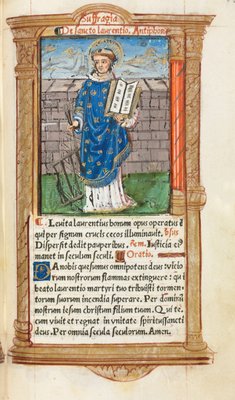 Suffragia
De sancto laurentio. Antiphona
Levita laurentius bonum opus operatus e
qui per signum crucis cecos illuminavit. vsus
Dispersit dedit pauperibus. Rem. Iusticia ei9
manet in seculum seculi. Oratio.
Da nobis quesumus omnipotens deus viciorū
nostrorum flammas extinguere: qui
beato laurentio martyri tuo tribuisti tormen-
torum suorum incendia superare. Per dominū
nostrum iesum christum filium tuum. Qui te-
cum vivit et regnat in unitate spiritussancti
deus. Per omnia secula seculorum. Amen.